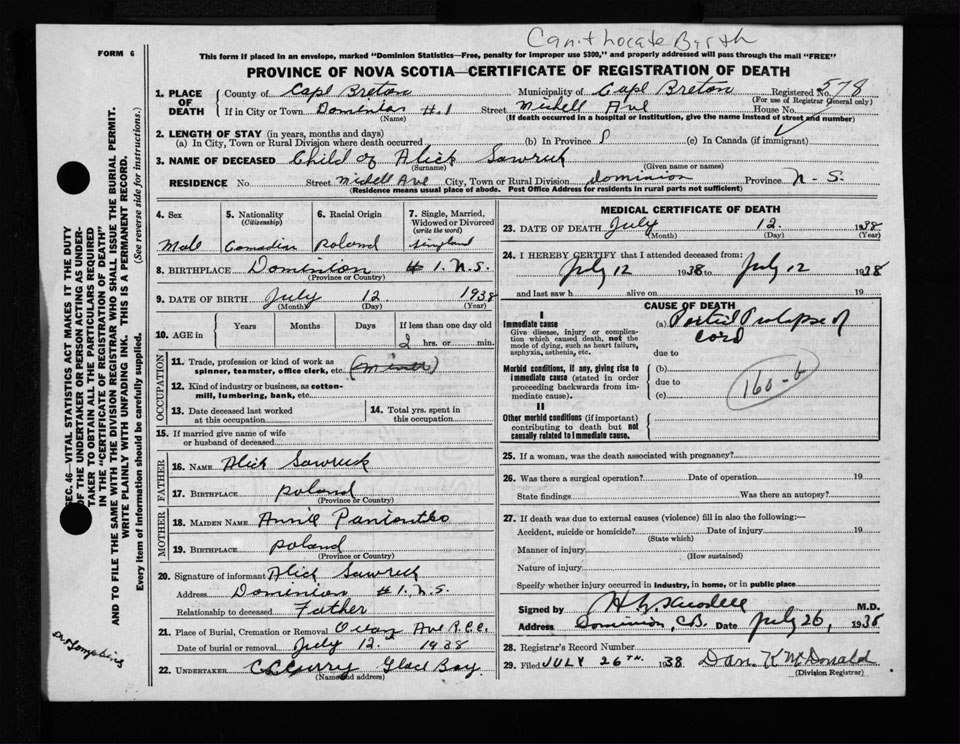 Can't Locate Birth
FORM 6
This form if placed in an envelope, marked "Dominion Statistics—Free, penalty for improper use $300," and properly addressed will pass through the mail "FREE"
PROVINCE OF NOVA SCOTIA—CERTIFICATE OF REGISTRATION OF DEATH
1. PLACE OF DEATH County of Cape Breton Municipality of Cape Breton Registered No. 578
(For use of Registrar General only)
If in City or Town Dominion #1 Street Michell Ave House No.
(Name) (If death occurred in a hospital or institution, give the name instead of street and number)
2. LENGTH OF STAY (in years, months and days)
(a) In City, Town or Rural Division where death occurred (b) In Province (c) In Canada (if immigrant)
3. NAME OF DECEASED Child of Alick Sawruk
(Surname) (Given name or names)
RESIDENCE No Street Michell Ave City, Town or Rural Division Dominion Province N-S.
(Residence means usual place of abode. Post Office Address for residents in rural parts not sufficient)
4. Sex 5. Nationality (Citizenship) 6. Racial Origin 7. Single, Married, Widowed or Divorced (write the word)
Male Canadian Poland
8. BIRTHPLACE Dominion #1. N.S.
(Province or Country)
9. DATE OF BIRTH July 12 1938
(Month) (Day) (Year)
10. AGE in Years Months Days If less than one day old
hrs. or min.
OCCUPATION
11. Trade, profession or kind of work as spinner, teamster, office clerk, etc. (Miner)
12. Kind of industry or business, as cotton-mill, lumbering, bank, etc.
13. Date deceased last worked at this occupation 14. Total yrs. spent in this occupation
15. If married give name of wife or husband of deceased
FATHER
16. NAME Alick Sawruck
17. BIRTHPLACE Poland
(Province or Country)
MOTHER
18. MAIDEN NAME Annie
19. BIRTHPLACE Poland
(Province or Country)
20. Signature of informant Alick Sawruck
Address Dominion #1. N.S.
Relationship to deceased Father
21. Place of Burial, Cremation or Removal Ave R.C.C.
Date of burial or removal July 12. 1938
22. UNDERTAKER C.C. Curry Glace Bay
(Name and address)
MEDICAL CERTIFICATE OF DEATH
23. DATE OF DEATH July 12. 1938
(Month) (Day) (Year)
24. I HEREBY CERTIFY that I attended deceased from:
July 12 1938 to July 12 1938
and last saw h alive on 19
CAUSE OF DEATH
I
Immediate cause (a) Partial Prolapse of Cord
Give disease, injury or complication which caused death, not the mode of dying, such as heart failure, asphyxia, asthenia, etc.
due to
Morbid conditions, if any, giving rise to immediate cause (stated in order proceeding backwards from immediate cause).
(b)
due to
(c)
160-b
II
Other morbid conditions (if important) contributing to death but not causally related to immediate cause.
25. If a woman, was the death associated with pregnancy?
26. Was there a surgical operation? Date of operation 19
State findings Was there an autopsy?
27. If death was due to external causes (violence) fill in also the following:—
Accident, suicide or homicide? Date of injury 19
(State which)
Manner of injury
(How sustained)
Nature of injury
Specify whether injury occurred in industry, in home, or in public place
Signed by M.D.
Address Dominion, C.B. Date July 26, 1938
28. Registrar's Record Number
29. Filed JULY 26TH. 1938 Dan. K McDonald
(Division Registrar)
SEC. 46—VITAL STATISTICS ACT MAKES IT THE DUTY
OF THE UNDERTAKER OR PERSON ACTING AS UNDERTAKER TO OBTAIN ALL THE PARTICULARS REQUIRED
IN THE "CERTIFICATE OF REGISTRATION OF DEATH"
AND TO FILE THE SAME WITH THE DIVISION REGISTRAR WHO SHALL ISSUE THE BURIAL PERMIT.
WRITE PLAINLY WITH UNFADING INK. THIS IS A PERMANENT RECORD.
Every item of information should be carefully supplied. (See reverse side for instructions.)
Dr Tompkins